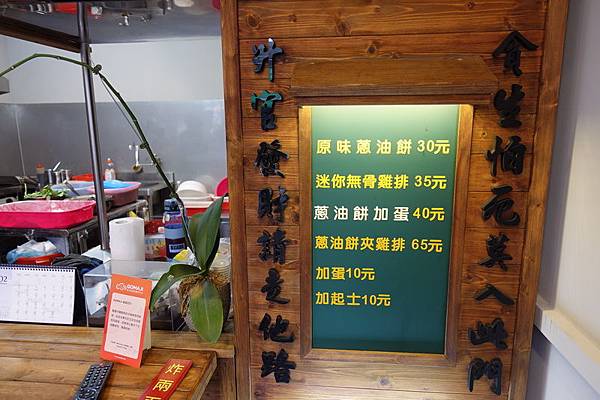 升官發財請走他路
貪生怕死莫入此門
原味蔥油餅 30元
迷你無骨雞排 35元
蔥油餅加蛋 40元
蔥油餅夾雞排 65元
加蛋10元
加起士10元
02
GOMAJI
炸兩